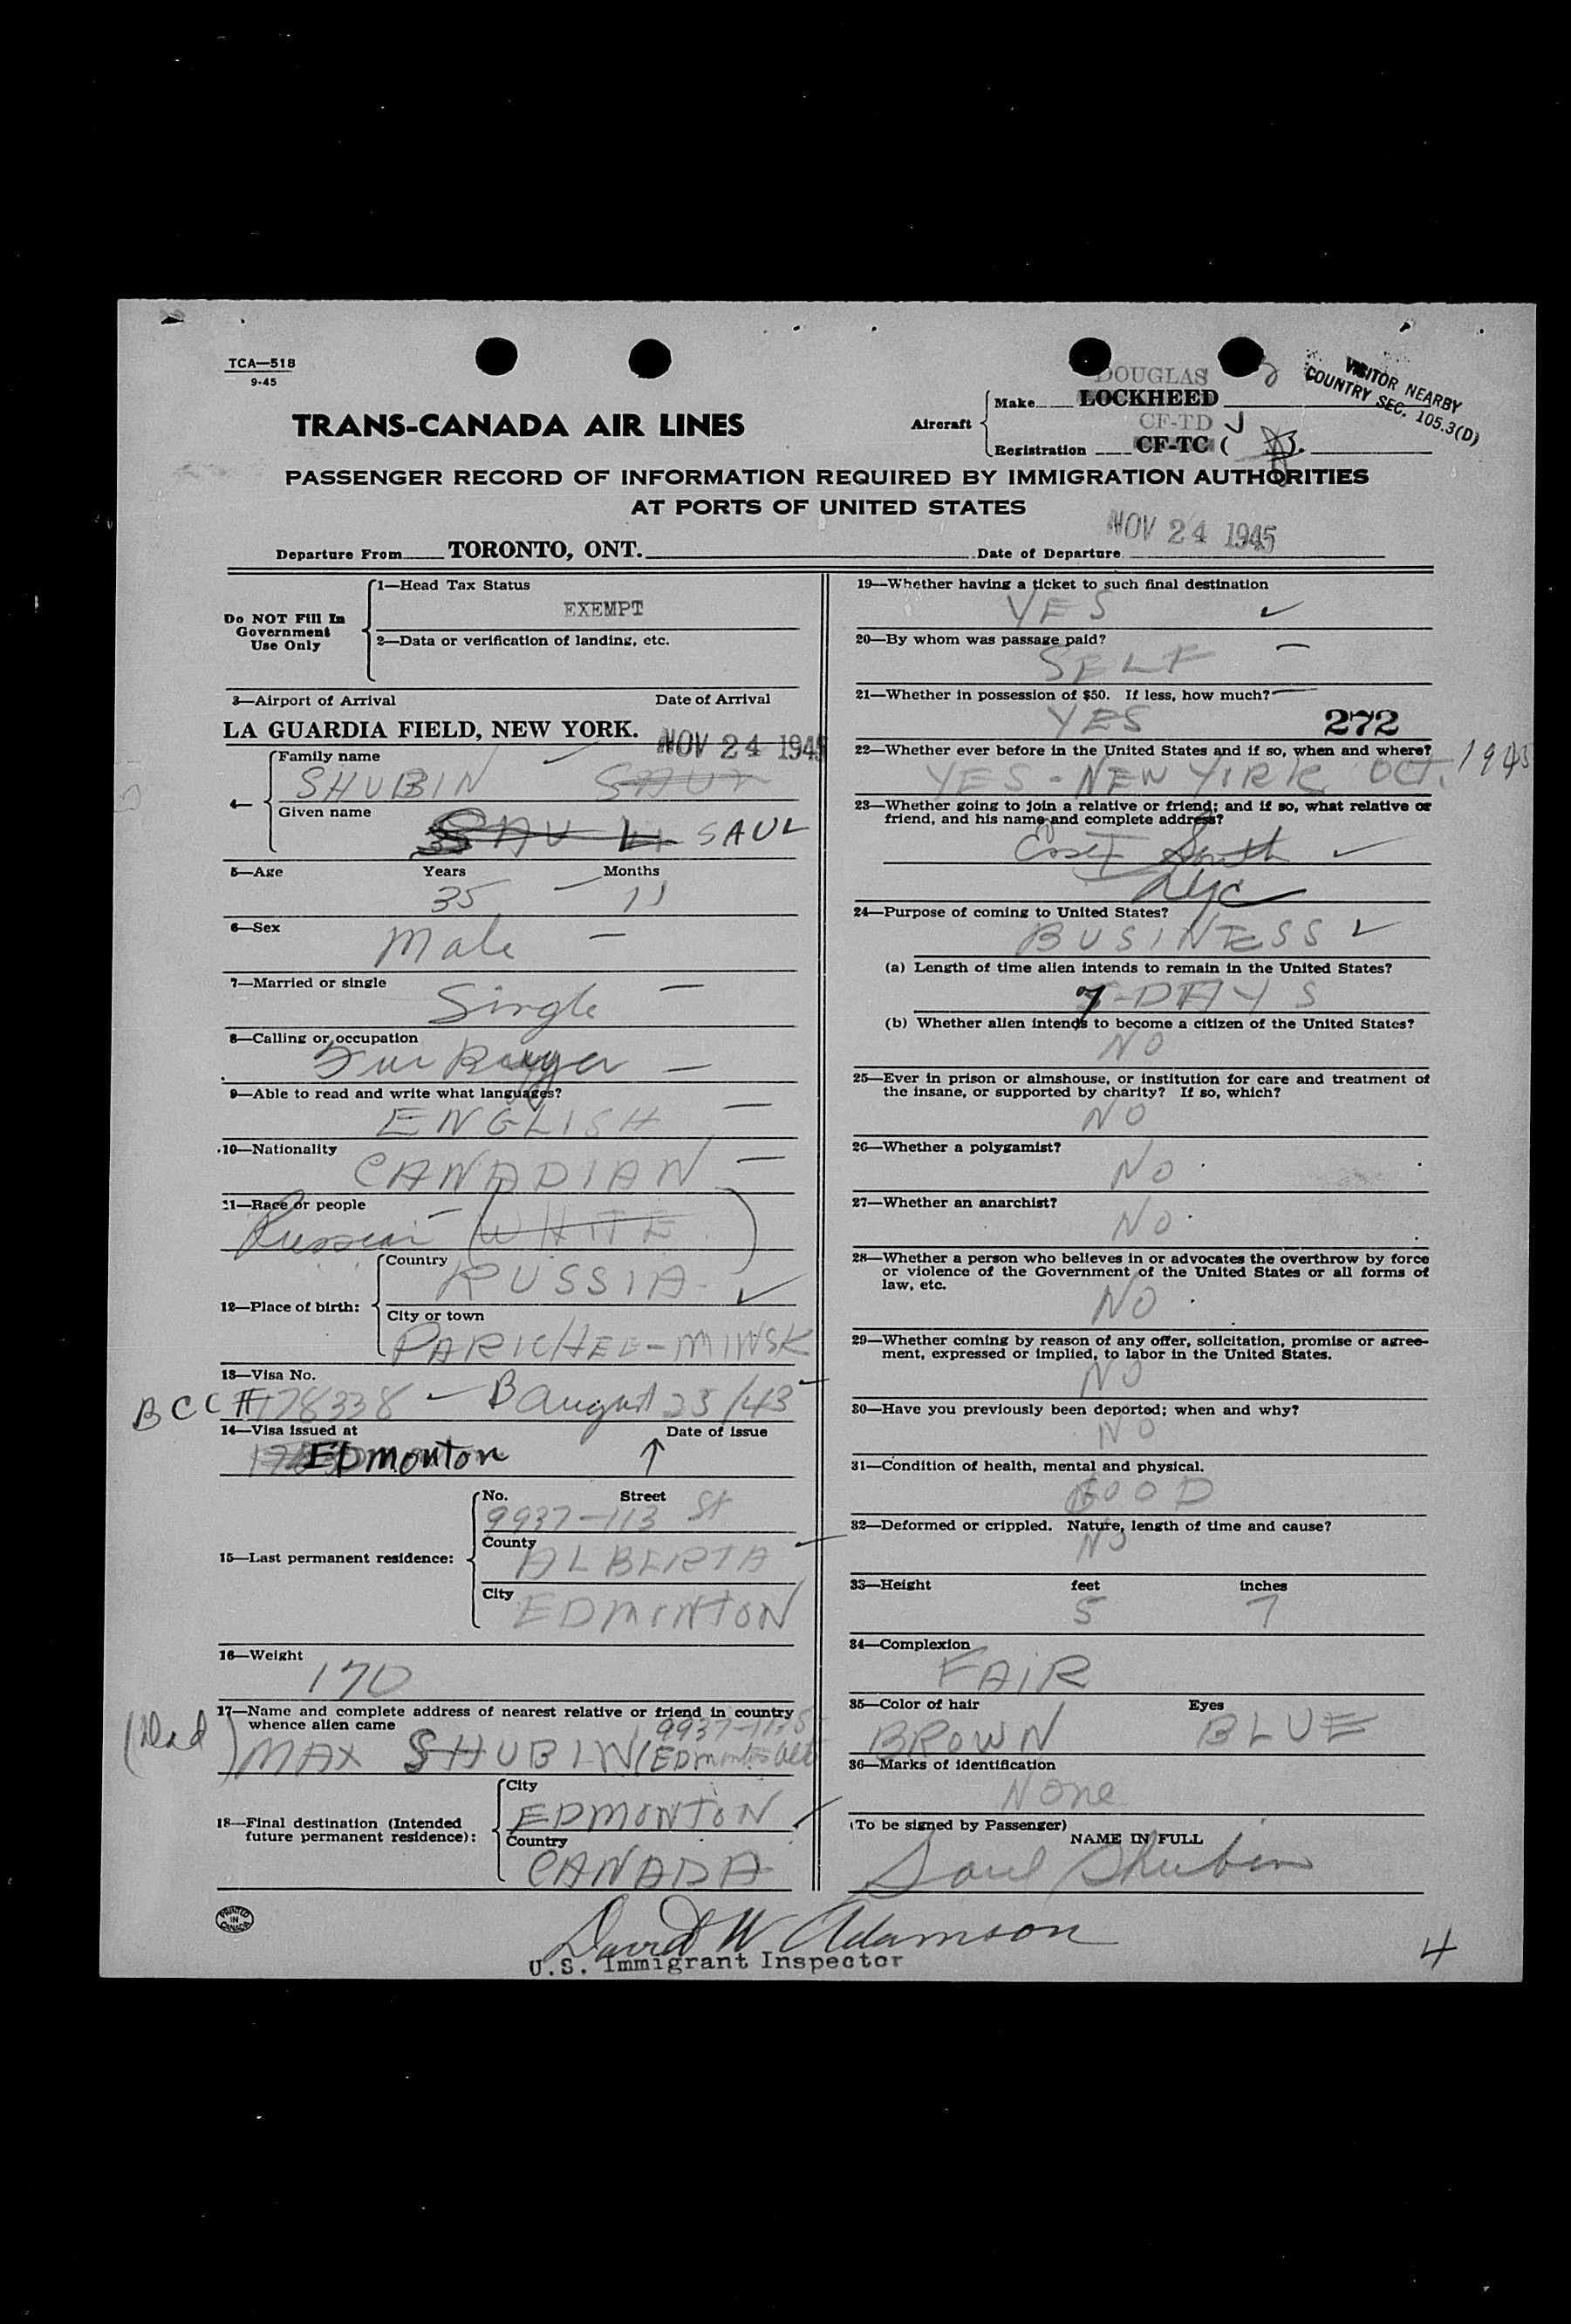 TCA—518
9-45
TRANS-CANADA AIR LINES
Aircraft
Make
DOUGLAS
LOCKHEED
CF-TD J
Registration CF-TC ( ).
VISITOR NEARBY
COUNTRY SEC. 105.3(D)
PASSENGER RECORD OF INFORMATION REQUIRED BY IMMIGRATION AUTHORITIES
AT PORTS OF UNITED STATES
Departure From TORONTO, ONT. Date of Departure NOV 24 1945
Do NOT Fill In
Government
Use Only
1—Head Tax Status
EXEMPT
2—Data or verification of landing, etc.
3—Airport of Arrival Date of Arrival
LA GUARDIA FIELD, NEW YORK. NOV 24 1945
4—
Family name
SHUBIN SAUL
Given name
SAUL SAUL
5—Age Years Months
35 — 11
6—Sex
Male —
7—Married or single
Single —
8—Calling or occupation
Fur Buyer —
9—Able to read and write what languages?
ENGLISH —
10—Nationality
CANADIAN —
11—Race or people
Russian — (WHITE)
12—Place of birth:
Country
RUSSIA
City or town
PARICHEE-MINSK
13—Visa No.
BCC #178338 — B August 23/43
14—Visa issued at Date of issue
Edmonton ↑
15—Last permanent residence:
No. Street
9937-113 St
County
ALBERTA
City
EDMONTON
16—Weight
170
17—Name and complete address of nearest relative or friend in country
whence alien came
9937-113 S
(Dad) MAX SHUBIN (Edmonton Alb
18—Final destination (Intended
future permanent residence):
City
EDMONTON
Country
CANADA
PRINTED
IN
CANADA
19—Whether having a ticket to such final destination
YES
20—By whom was passage paid?
SELF
21—Whether in possession of $50. If less, how much?
YES 272
22—Whether ever before in the United States and if so, when and where?
YES - NEW YORK OCT. 1945
23—Whether going to join a relative or friend; and if so, what relative or
friend, and his name and complete address?
NYC
24—Purpose of coming to United States?
BUSINESS
(a) Length of time alien intends to remain in the United States?
7-DAYS
(b) Whether alien intends to become a citizen of the United States?
NO
25—Ever in prison or almshouse, or institution for care and treatment of
the insane, or supported by charity? If so, which?
NO
26—Whether a polygamist?
NO
27—Whether an anarchist?
NO
28—Whether a person who believes in or advocates the overthrow by force
or violence of the Government of the United States or all forms of
law, etc.
NO
29—Whether coming by reason of any offer, solicitation, promise or agree-
ment, expressed or implied, to labor in the United States.
NO
30—Have you previously been deported; when and why?
NO
31—Condition of health, mental and physical.
GOOD
32—Deformed or crippled. Nature, length of time and cause?
NO
33—Height feet inches
5 7
34—Complexion
FAIR
35—Color of hair Eyes
BROWN BLUE
36—Marks of identification
None
(To be signed by Passenger)
NAME IN FULL
Saul Shubin
David W Adamson
U.S. Immigrant Inspector
4